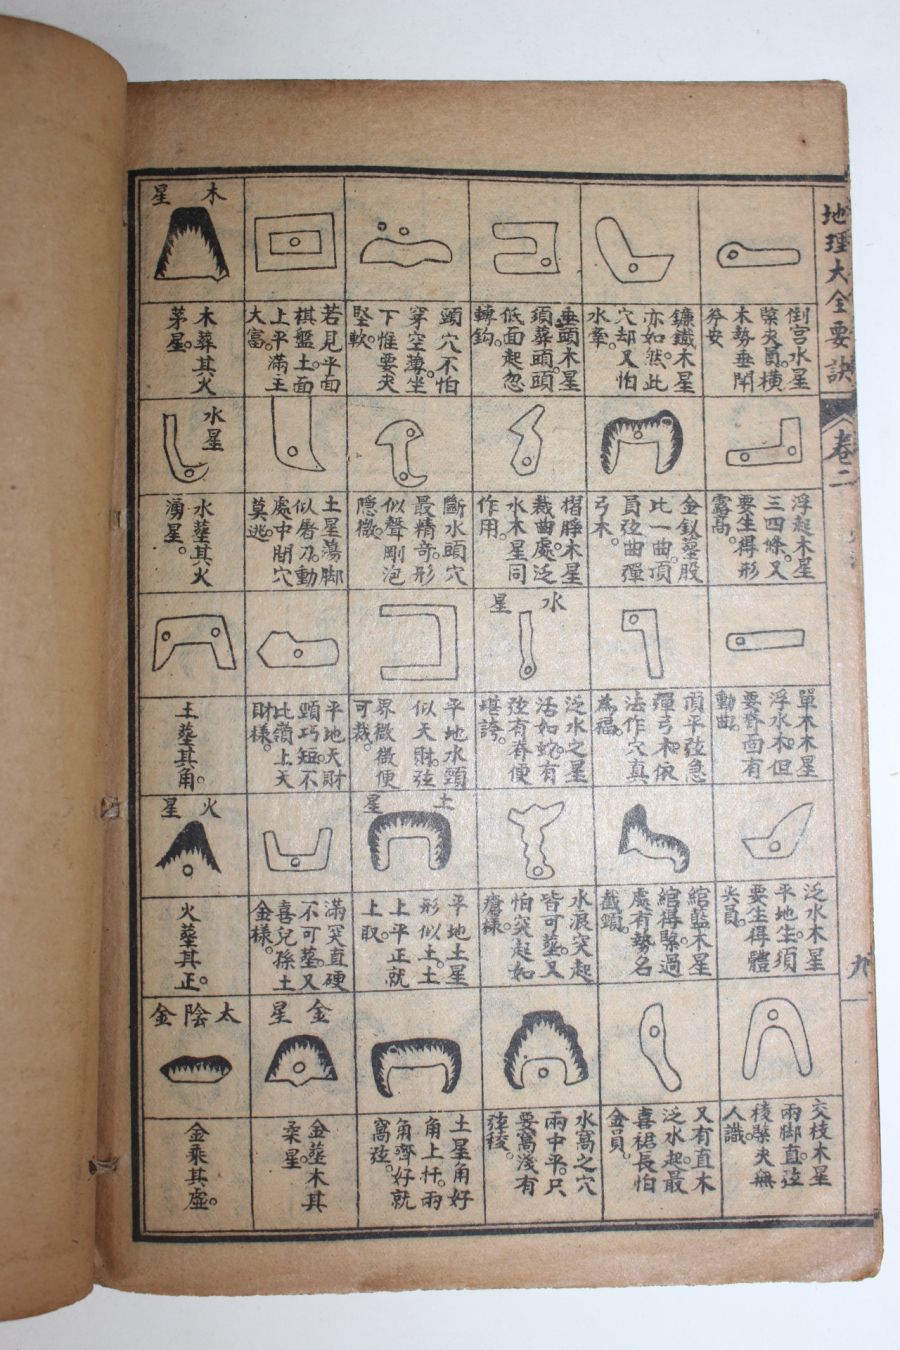 地理大全要訣
卷二
九
倒宮水星
緊夾員橫
木勢垂閉
芬安
浮起木星
三四條又
要生得形
露高。
單木木星
浮水木但
要脊面有
動曲。
泛水木星
平地生。須
要生得體
尖員。
交枝木星
兩脚直。弦
稜緊夾無
人識。
鐮鐵木星
亦如然此
穴却又怕
水牽。
金釵塟股
比一曲頂
員弦曲彈
弓木。
頂平弦急
彈弓木依
法作穴真
為福。
綰藍木星
綰得緊過
處有勢名
戲鎖。
又有直木
泛水起最
喜裙長怕
金員。
垂頭木星
須葬頭頭
低面起忽
轉鈎。
摺睜木星
裁曲處泛
水木星同
作用。
水星
泛水之星
活如蛇有
弦有脊便
堪誇。
水浪突起
皆可塟。又
怕突起如
瘡樣。
水窩之穴
兩中平。只
要窩淺有
弦稜。
頭穴不怕
穿空薄。坐
下惟要夾
堅軟。
斷水頭穴
最精奇。形
似聲剛泡
隱微。
平地水頸
似天財弦
界微微便
可裁。
土星
平地土星
形似土。土
上平正就
上取。
土星角好
角上杆。兩
角齊好就
窩弦。
若見平面
棋盤土面
上平滿主
大富。
土星蕩脚
似屠刀動
處中間穴
莫逃。
平地天財
頸巧短不
比嶺上天
財樣。
滿突直硬
不可塟又
喜兒孫土
金樣。
金星
金塟木其
柔星。
木星
木葬其火
茅星。
水星
水塟其火
湧星。
土塟其角。
火星
火塟其正。
太陰金
金乘其虛。